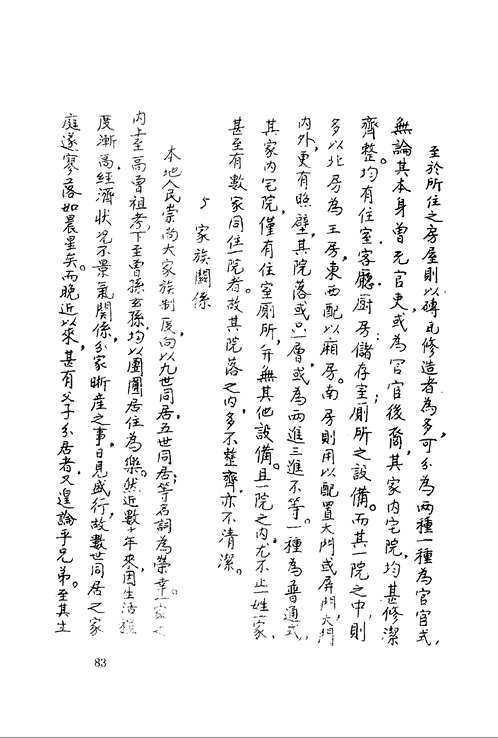 至於所住之房屋則以磚瓦修造者為多可分為兩種一種為官官式，
無論其本身曾无官吏，或為官官後裔，其家內宅院，均甚修潔
齊整。均有住室、客廳、廚房、儲存室、廁所之設備。而其一院之中，則
多以北房為王房，東西配以廂房。南房則用以配置大門或屏門，大門
內外，更有照壁，其院落或只一層，或為兩進三進不等。一種為普通式，
其家內宅院，僅有住室廁所，并無其他設備。且一院之內，尤不止一姓一家，
甚至有數家同住一院者。故其院落之內，多不整齊，亦不清潔。
5 家族關係
本地人民崇尚大家族制度，向以九世同居，五世同居；等名詞為榮幸。一家之
內上至高曾祖考，下至曾孫玄孫，均以團團居住為樂。然近數十年來，因生活程
度漸高，經濟狀況不景氣關係，分家晰產之事，日見盛行，故數世同居之家
庭遂寥落如晨星矣。而晚近以來，甚有父子分居者，又遑論乎兄弟。至其土
83